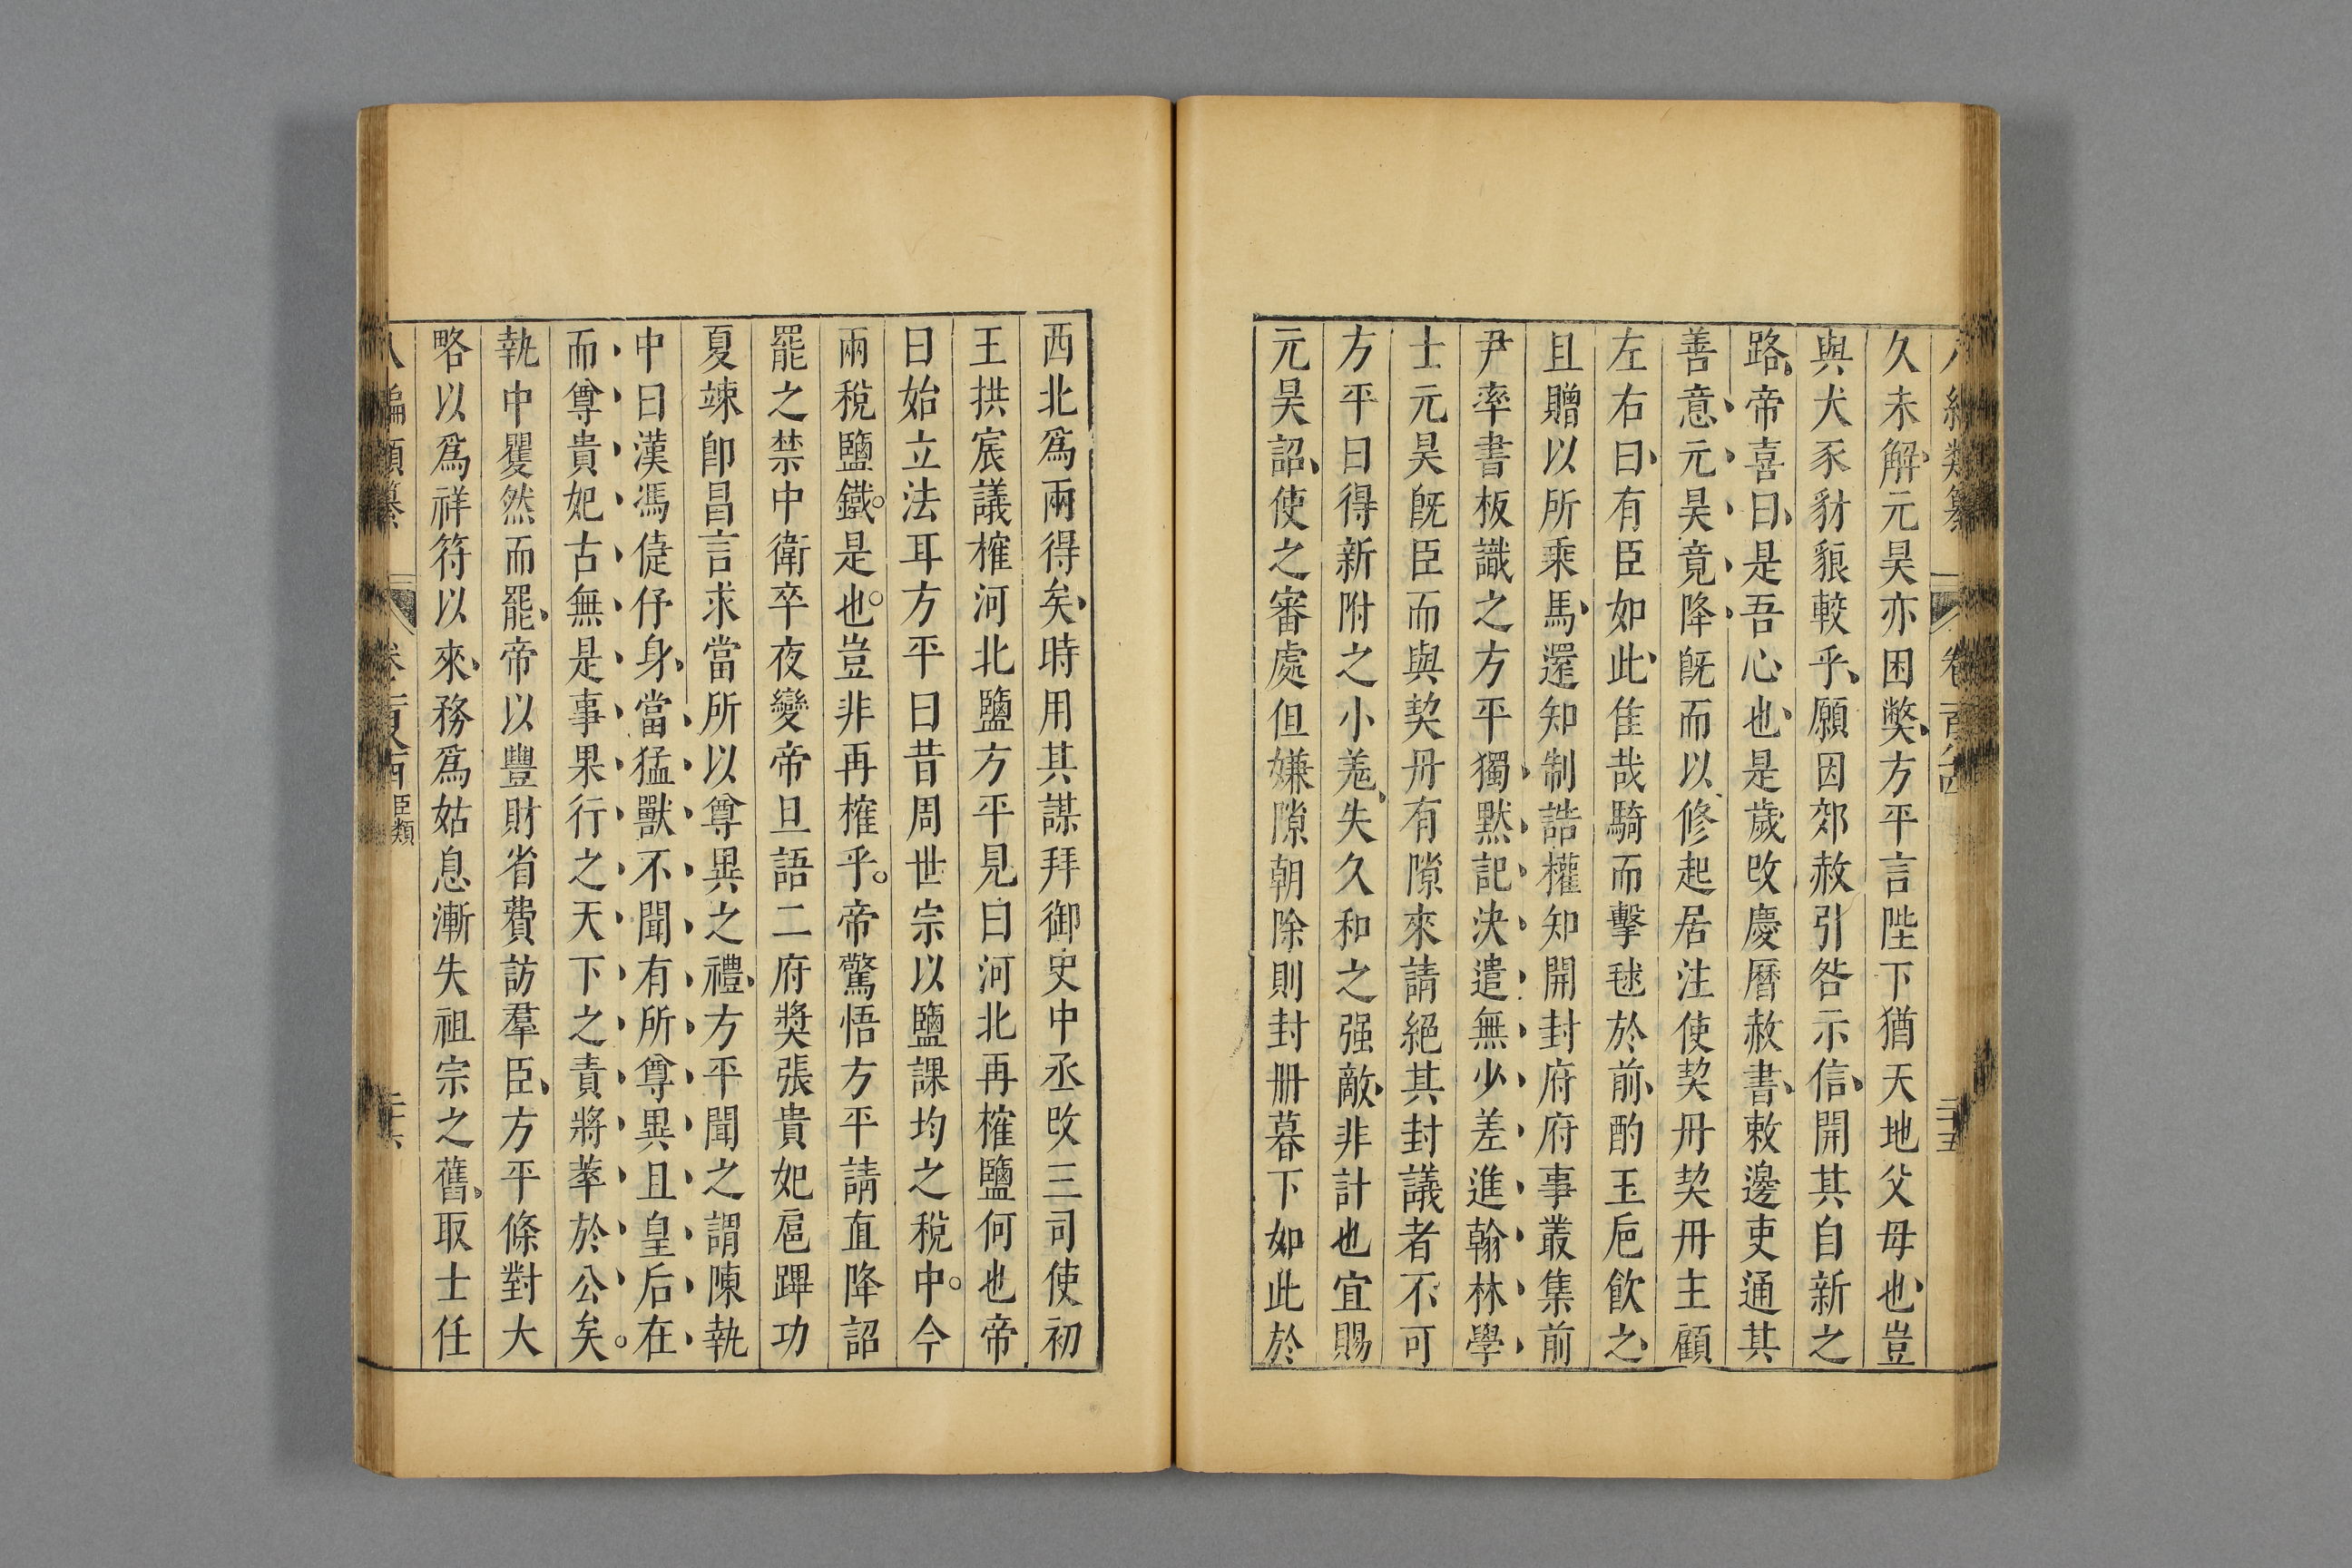 久未解元昊亦困弊方平言陛下猶天地父母也豈
與犬豕豺狼較乎願因郊赦引咎示信開其自新之
路帝喜曰是吾心也是歲改慶曆赦書敕邊吏通其
善意元昊竟降既而以修起居注使契丹契丹主顧
左右曰有臣如此佳哉騎而擊毬於前酌玉卮飲之
且贈以所乘馬還知制誥權知開封府府事叢集前
尹率書板識之方平獨默記決遣無少差進翰林學
士元昊既臣而與契丹有隙來請絕其封議者不可
方平曰得新附之小羌失久和之强敵非計也宜賜
元昊詔使之審處但嫌隙朝除則封冊暮下如此於
西北爲兩得矣時用其謀拜御史中丞改三司使初
王拱宸議榷河北鹽方平見曰河北再榷鹽何也帝
曰始立法耳方平曰昔周世宗以鹽課均之稅中今
兩稅鹽鐵是也豈非再榷乎帝驚悟方平請直降詔
罷之禁中衛卒夜變帝旦語二府獎張貴妃扈蹕功
夏竦卽昌言求當所以尊異之禮方平聞之謂陳執
中曰漢馮倢伃身當猛獸不聞有所尊異且皇后在
而尊貴妃古無是事果行之天下之責將萃於公矣
執中矍然而罷帝以豐財省費訪羣臣方平條對大
略以爲祥符以來務爲姑息漸失祖宗之舊取士任
八編類纂 臣類